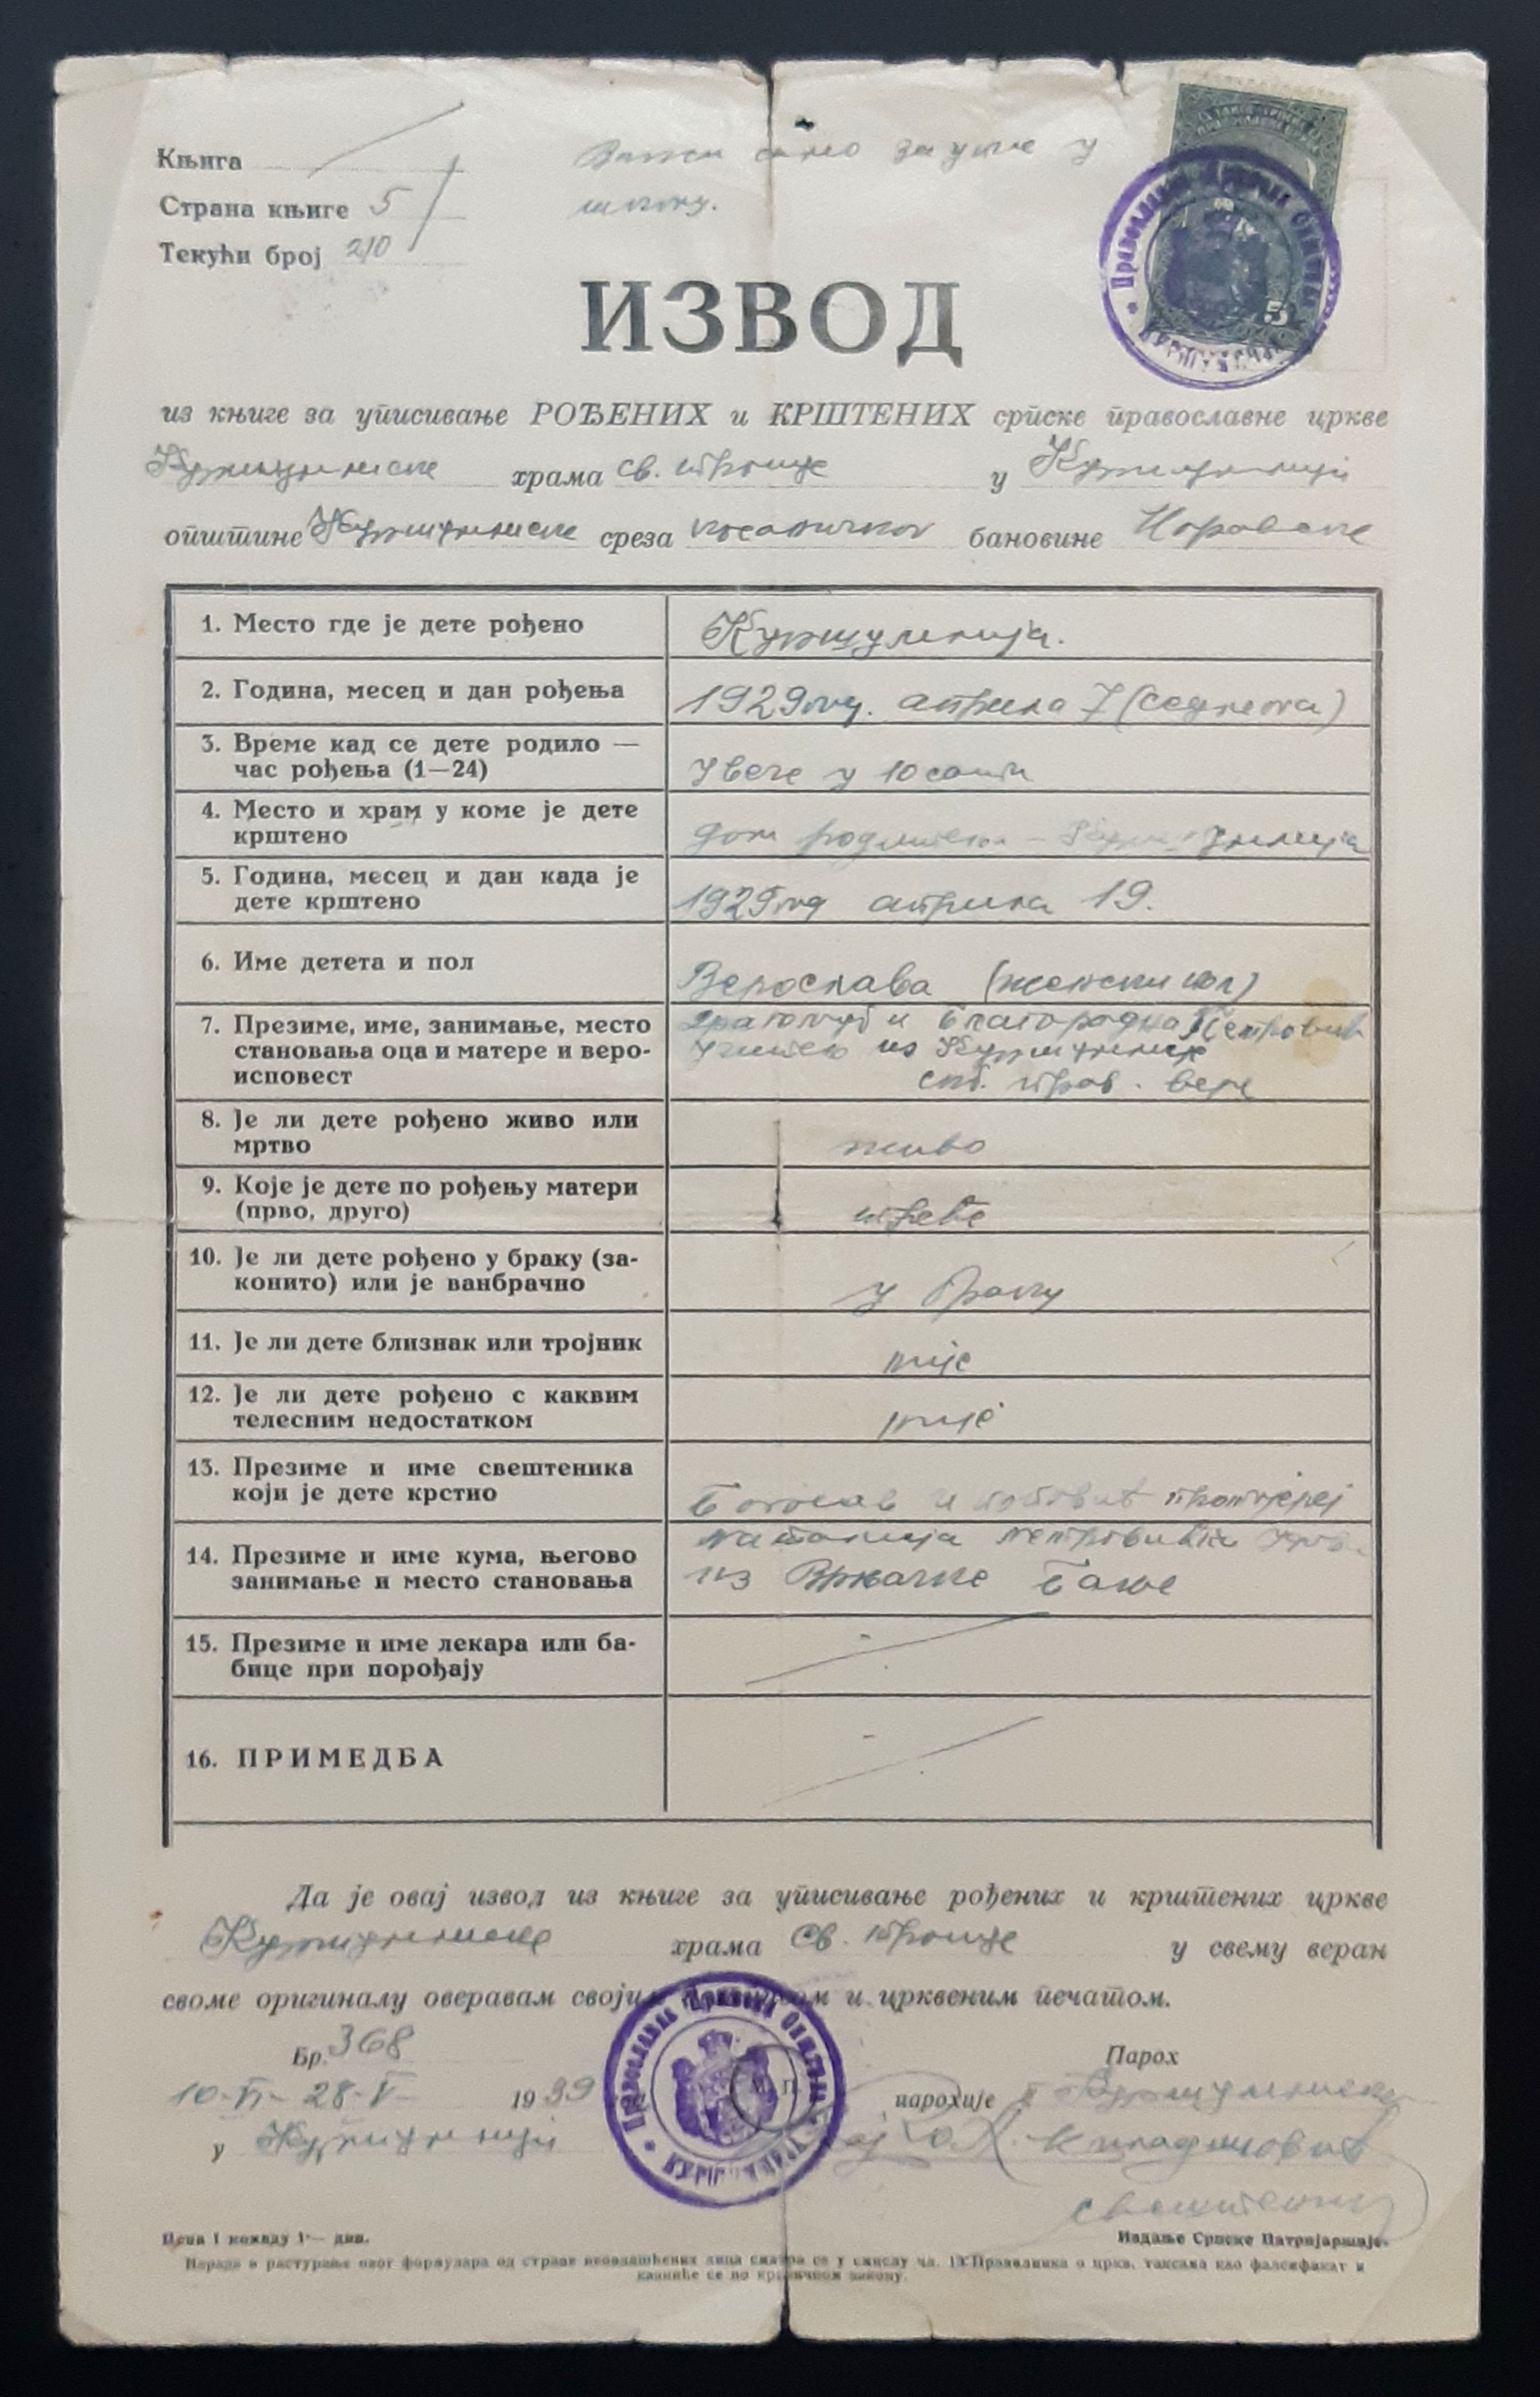 Књига
Страна књиге 5
Текући број 210
Важи само за упис у
школу.
5
ИЗВОД
из књиге за уписивање РОЂЕНИХ и КРШТЕНИХ српске православне цркве
Куршумлиске храма св. Тројице у Куршумлији
општине Куршумлиске среза косаничког бановине Моравске
1. Место где је дете рођено Куршумлија.
2. Година, месец и дан рођења 1929 год. априла 7 (седмога)
3. Време кад се дете родило — час рођења (1—24) увече у 10 сати
4. Место и храм у коме је дете крштено дом родитеља - Куршумлија
5. Година, месец и дан када је дете крштено 1929 год априла 19.
6. Име детета и пол Верослава (женски пол)
7. Презиме, име, занимање, место становања оца и матере и вероисповест Драгољуб и Благородна Петровић
учитељ из Куршумлије
срб. прав. вере
8. Је ли дете рођено живо или мртво живо
9. Које је дете по рођењу матери (прво, друго) треће
10. Је ли дете рођено у браку (законито) или је ванбрачно у браку
11. Је ли дете близнак или тројник није
12. Је ли дете рођено с каквим телесним недостатком није
13. Презиме и име свештеника који је дете крстио протојереј
14. Презиме и име кума, његово занимање и место становања Наталија Петровића
из Врњачке Бање
15. Презиме и име лекара или бабице при порођају
16. ПРИМЕДБА
Да је овај извод из књиге за уписивање рођених и крштених цркве
Куршумлиске храма Св. Тројице у свему веран
своме оригиналу оверавам својим потписом и црквеним печатом.
Бр. 368 Парох
10-VI- 28-V- 1939 М. П. парохије II Куршумлиске
у Куршумлији Младеновић
свештеник
Цена 1 комаду 1·— дин. Издање Српске Патријаршије.
Израда и растурање овог формулара од стране неовлашћених лица сматра се у смислу чл. 13 Правилника о цркв. таксама као фалсификат и
казниће се по кривичном закону.